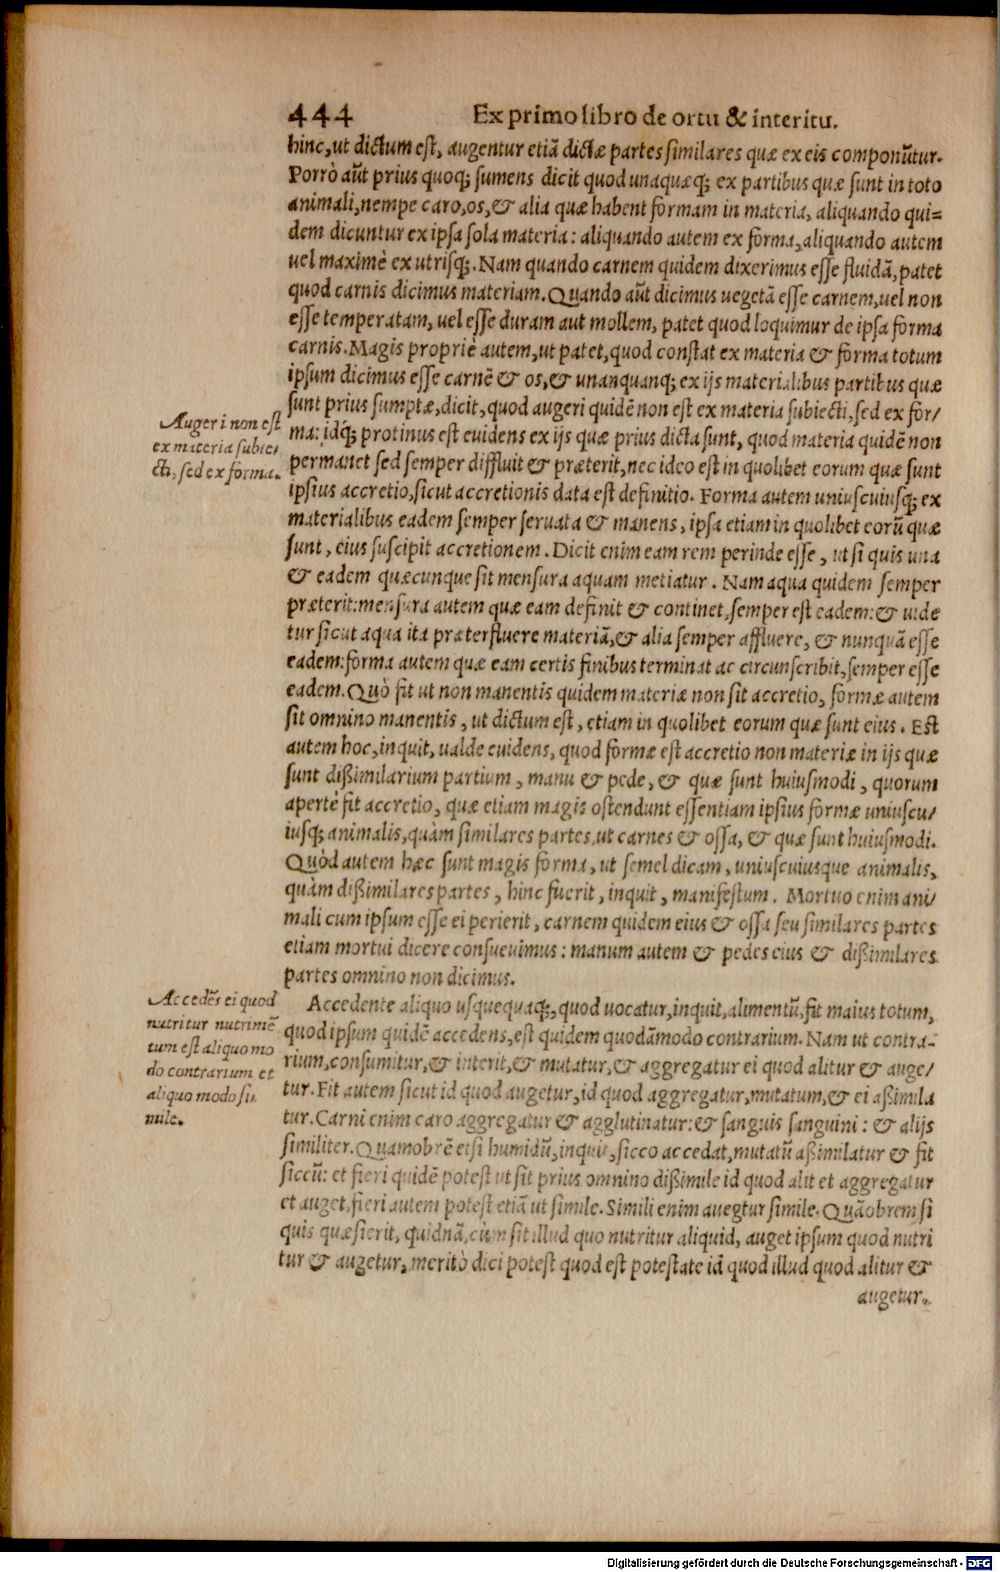 444 Ex primo libro de ortu & interitu.
hinc, ut dictum est, augentur etiā dictæ partes similares quæ ex eis componūtur.
Porrò aūt prius quoq; sumens dicit quod unaquæq; ex partibus quæ sunt in toto
animali, nempe caro, os, & alia quæ habent formam in materia, aliquando qui=
dem dicuntur ex ipsa sola materia: aliquando autem ex forma, aliquando autem
uel maximè ex utrisq;. Nam quando carnem quidem dixerimus esse fluidā, patet
quod carnis dicimus materiam. Quando aūt dicimus uegetā esse carnem, uel non
esse temperatam, uel esse duram aut mollem, patet quod loquimur de ipsa forma
carnis. Magis propriè autem, ut patet, quod constat ex materia & forma totum
ipsum dicimus esse carnē & os, & unanquanq; ex ijs materialibus partibus quæ
sunt prius sumptæ, dicit, quod augeri quidē non est ex materia subiecti, sed ex for/
ma: idq; protinus est euidens ex ijs quæ prius dicta sunt, quod materia quidē non
permanet sed semper diffluit & præterit, nec ideo est in quolibet eorum quæ sunt
ipsius accretio, sicut accretionis data est definitio. Forma autem uniuscuiusq; ex
materialibus eadem semper seruata & manens, ipsa etiam in quolibet eorū quæ
sunt, eius suscipit accretionem. Dicit enim eam rem perinde esse, ut si quis una
& eadem quæcunque sit mensura aquam metiatur. Nam aqua quidem semper
præterit: mensura autem quæ eam definit & continet, semper est eadem: & uide
tur sicut aqua ita præterfluere materiā, & alia semper affluere, & nunquā esse
eadem: forma autem quæ eam certis finibus terminat ac circunscribit, semper esse
eadem. Quò fit ut non manentis quidem materiæ non sit accretio, formæ autem
sit omnino manentis, ut dictum est, etiam in quolibet eorum quæ sunt eius. Est
autem hoc, inquit, ualde euidens, quod formæ est accretio non materiæ in ijs quæ
sunt dißimilarium partium, manu & pede, & quæ sunt huiusmodi, quorum
apertè fit accretio, quæ etiam magis ostendunt essentiam ipsius formæ uniuscu/
iusq; animalis, quàm similares partes, ut carnes & ossa, & quæ sunt huiusmodi.
Quòd autem hæc sunt magis forma, ut semel dicam, uniuscuiusque animalis,
quàm dißimilares partes, hinc fuerit, inquit, manifestum. Mortuo enim ani/
mali cum ipsum esse ei perierit, carnem quidem eius & ossa seu similares partes
etiam mortui dicere consueuimus: manum autem & pedes eius & dißimilares
partes omnino non dicimus.
Augeri non est
ex materia subie/
cti, sed ex forma.
Accedente aliquo usquequaq;, quod uocatur, inquit, alimentū, fit maius totum,
quod ipsum quidē accedens, est quidem quodāmodo contrarium. Nam ut contra-
rium, consumitur, & interit, & mutatur, & aggregatur ei quod alitur & auge/
tur. Fit autem sicut id quod augetur, id quod aggregatur, mutatum, & ei aßimila
tur. Carni enim caro aggregatur & agglutinatur: & sanguis sanguini: & alijs
similiter. Quamobrē etsi humidū, inquit, sicco accedat, mutatū aßimilatur & fit
siccū: et fieri quidē potest ut sit prius omnino dißimile id quod alit et aggregatur
et auget, fieri autem potest etiā ut simile. Simili enim auegtur simile. Quāobrem si
quis quæsierit, quidnā, cùm sit illud quo nutritur aliquid, auget ipsum quod nutri
tur & augetur, meritò dici potest quod est potestate id quod illud quod alitur &
augetur.
Accedēs ei quod
nutritur nutrimē
tum est aliquo mo
do contrarium et
aliquo modo si
mile.
Digitalisierung gefördert durch die Deutsche Forschungsgemeinschaft - DFG